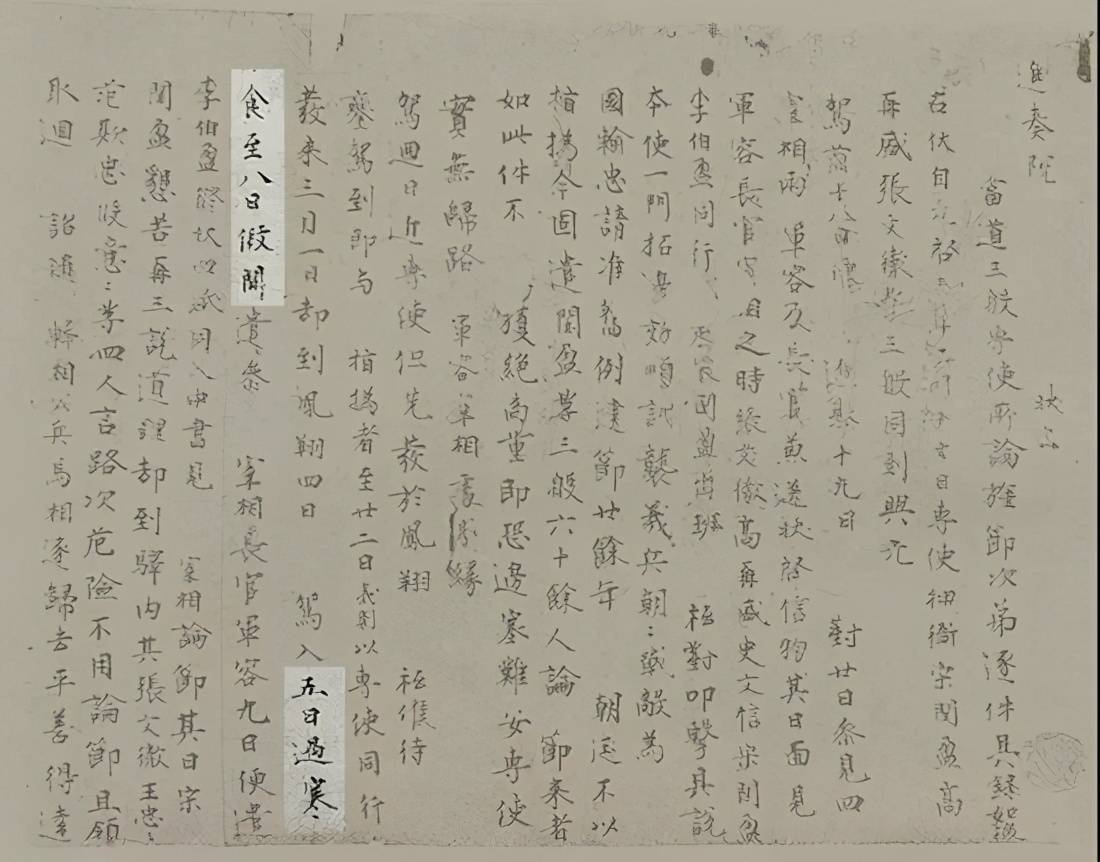 進奏院　狀上
當道三般專使所論旌節次第逐件具錄如後
右伏自光啓三年二月十七日專使押衙宋閏盈高
再盛張文徹等三般同到興元
駕前十八日使進奉十九日　對廿日參見四
宰相兩軍容及長官兼送狀啓信物其日面見
軍容長官宰相之時張文徹高再盛史文信宋閏盈
李伯盈同行宋閏盈出班　祗對叩擊具說
本使一門拓邊効順訓襲義兵朝〻戰敵為
國輸忠請准舊例建節廿餘年　朝廷不以
指撝今因遣閏盈等三般六十餘人論節來者
如此件不獲絕商量即恐邊塞難安專使
實無歸路　軍容宰相處分緣
駕迴日近專使但先發於鳳翔　祗候待
鑾駕到即与　指撝者至廿二日夷則以專使同行
發來三月一日却到鳳翔四日　駕入五日遇寒
食至八日假開遣參　宰相長官軍容九日便遣
李伯盈修狀四紙同入中書見　宰相論節其日宋
閏盈懇苦再三說道理却到驛內其張文徹王忠〻
范欺忠段意〻等四人言路次危險不用論節且領
取迴　詔隨韓相公兵馬相逐歸去平善得達